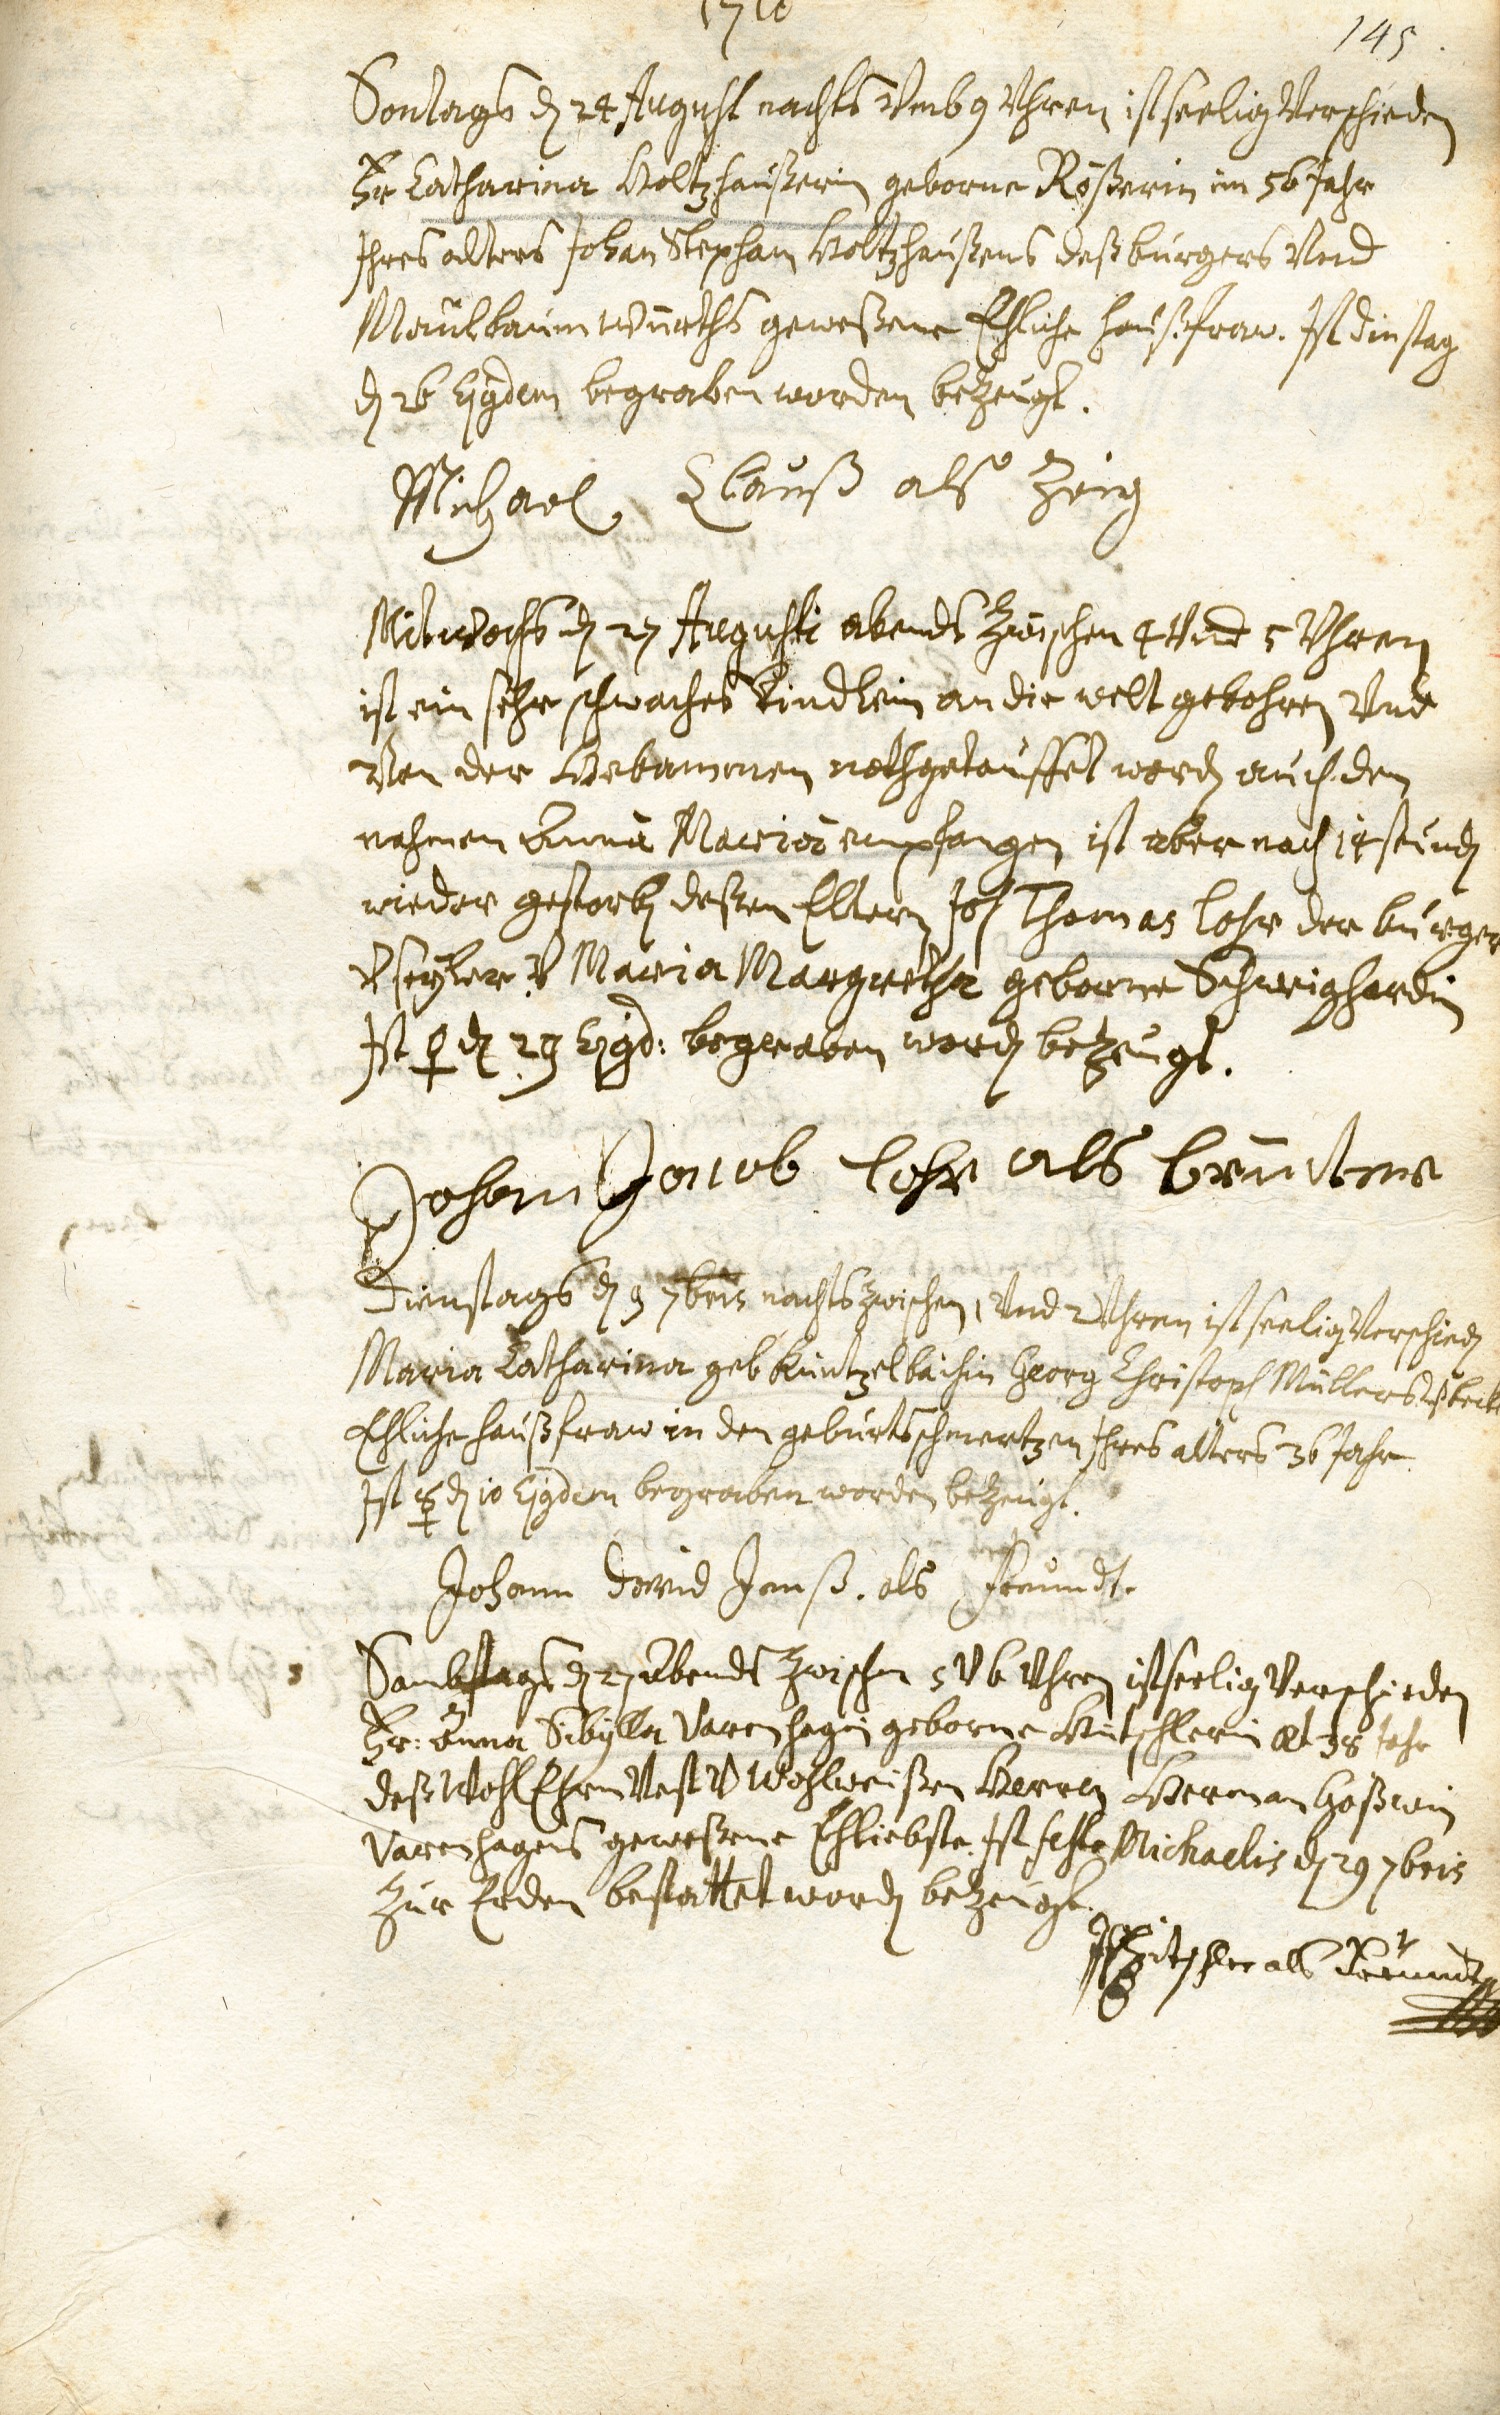 1710
145
Sontags d 24 August nachts Vmb 9 Vhren ist seelig Verschieden
Fr Catharina Holtzhaußerin geborne Rößerin im 56 Jahr
Ihres alters Johan Stephan Holtzhaußens deß burgers Vnd
Maulbaumwürths geweßene Ehliche Haußfraw. Ist dinstag
d 26 Ejgdem begraben worden bezeugt.
Michael Clauß als Zeug
Mitwochs d 27 Augusti abends Zwischen 4 Vnd 5 Vhren
ist ein sehr schwaches Kindlein an die welt gebohren Vnd
Von der Hebammen nothgetauffet word auch den
nahmen Anna Maria empfangen ist aber nach 14 stund
wieder gestorb deßen Eltern Joh Thomas Lohr der burger
V seyler V Maria Margretha geborne Schweighardin
Ist ♀ d 29 Ejgd: begraben word bezeugt.
Johann Jacob Lohr als bruder
Dienstags d 9 7bris nachts zwischen 1 Vnd 2 Vhren ist seelig Verschied
Maria Catharina geb Küntzelbachin Georg Christoph Müllers deß beck
Ehliche haußfraw in den geburtsschmertzen Ihres alters 36 Jahr
Ist ☿ d 10 Ejgdem begraben worden bezeugt.
Johann David Janß. als Freundt.
Sambstags d 27 Abends Zwischen 5 V 6 Vhren ist seelig Verschieden
Fr: Anna Sibylla Varenhagin geborne Hitschlerin alt 38 Jahr
deß WohlEhrnVest V Wohlweißen Herren Herman Goßwin
Varenhagens geweßene Ehliebste. Ist festo Michaelis d 29 7bris
Zur Erden bestattet word bezeugt.
Hitschler als Freundt